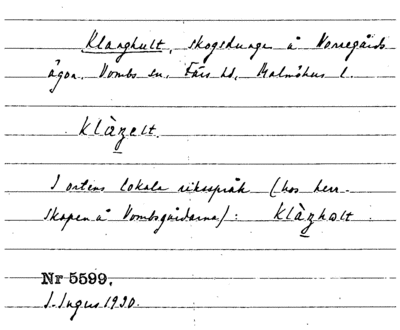 Klanghult, skogsdunge å Norregårds
ägor. Vombs sn, Färs hd, Malmöhus l.
Klàŋelt.
I ortens lokala riksspråk (hos herr-
skapen å Vombsgårdarna): Klàŋholt.
Nr 5599.
I. Ingers 1930.